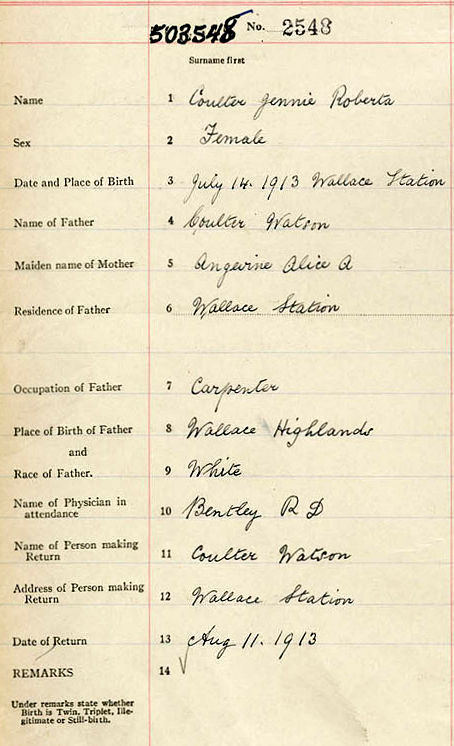 503548 No. 2548
Surname first
Name 1 Coulter Jennie Roberta
Sex 2 Female
Date and Place of Birth 3 July 14. 1913 Wallace Station
Name of Father 4 Coulter Watson
Maiden name of Mother 5 Angevine Alice A
Residence of Father 6 Wallace Station
Occupation of Father 7 Carpenter
Place of Birth of Father 8 Wallace Highlands
and
Race of Father. 9 White
Name of Physician in
attendance 10 Bentley R D
Name of Person making
Return 11 Coulter Watson
Address of Person making
Return 12 Wallace Station
Date of Return 13 Aug 11. 1913
REMARKS 14
Under remarks state whether
Birth is Twin, Triplet, Ille-
gitimate or Still-birth.